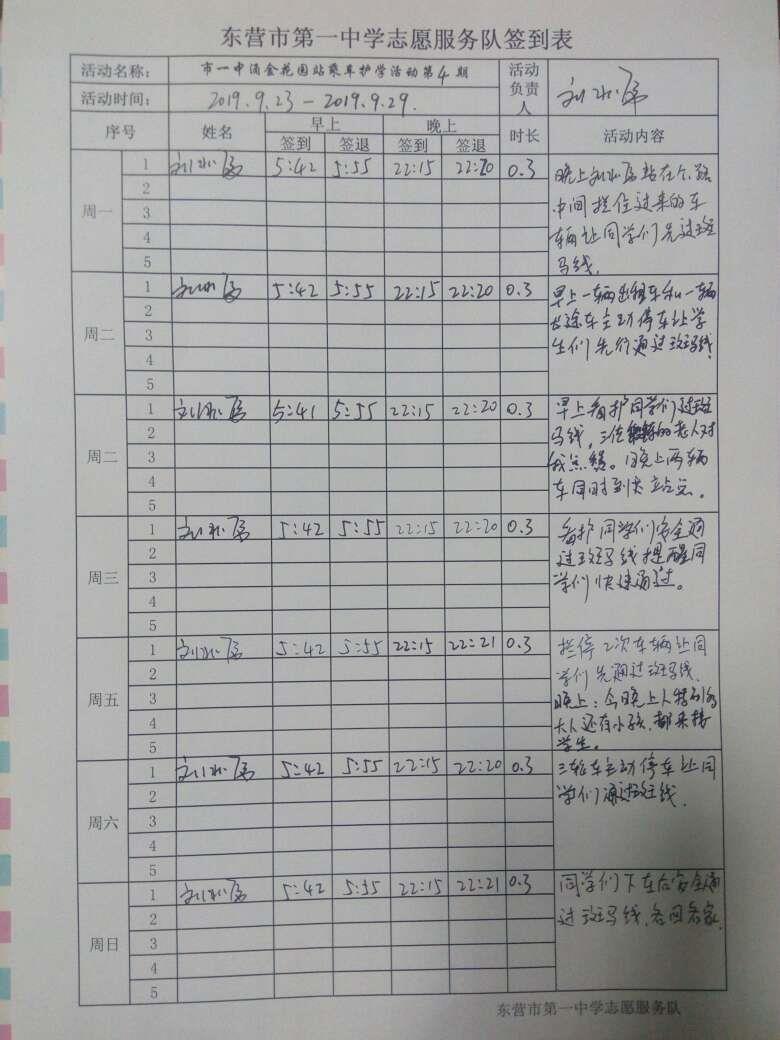 东营市第一中学志愿服务队签到表
活动名称： 市一中涌金花园站乘车护学活动第4期 活动负责人
活动时间： 2019.9.23－2019.9.29.
序号 姓名 早上 晚上 时长 活动内容
签到 签退 签到 签退
周一 1 5:42 5:55 22:15 22:20 0.3
晚上 站在公路
中间拦住过来的车
辆让同学们先过斑
马线.
2
3
4
5
周二 1 5:42 5:55 22:15 22:20 0.3
早上一辆出租车和一辆
长途车主动停车让学
生们先行通过斑马线.
2
3
4
5
周二 1 5:41 5:55 22:15 22:20 0.3
早上看护同学们过斑
马线，三位 的老人对
我点赞。晚上两辆
车同时到达站点。
2
3
4
5
周三 1 5:42 5:55 22:15 22:20 0.3
看护同学们安全通
过斑马线提醒同
学们快速通过。
2
3
4
5
周五 1 5:42 5:55 22:15 22:21 0.3
拦停2次车辆让同
学们先通过斑马线.
晚上：今晚上人特别多
大人还有小孩.都来接
学生。
2
3
4
5
周六 1 5:42 5:55 22:15 22:20 0.3
三轮车主动停车让同
学们通过 线.
2
3
4
5
周日 1 5:42 5:55 22:15 22:21 0.3
同学们下车后安全通
过斑马线.各回各家.
2
3
4
5
东营市第一中学志愿服务队